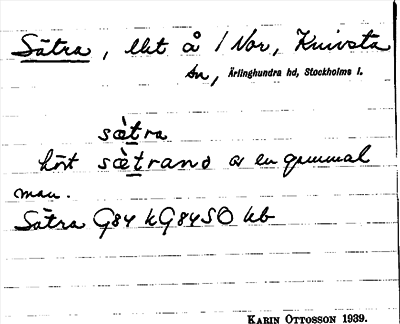 Sätra, llht å 1 Nor, Knivsta
sn, Ärlinghundra hd, Stockholms l.
sæ̀tra
hört sæ̀trano av en gammal
man.
Sätra G84 kG84SO kb
KARIN OTTOSSON 1939.